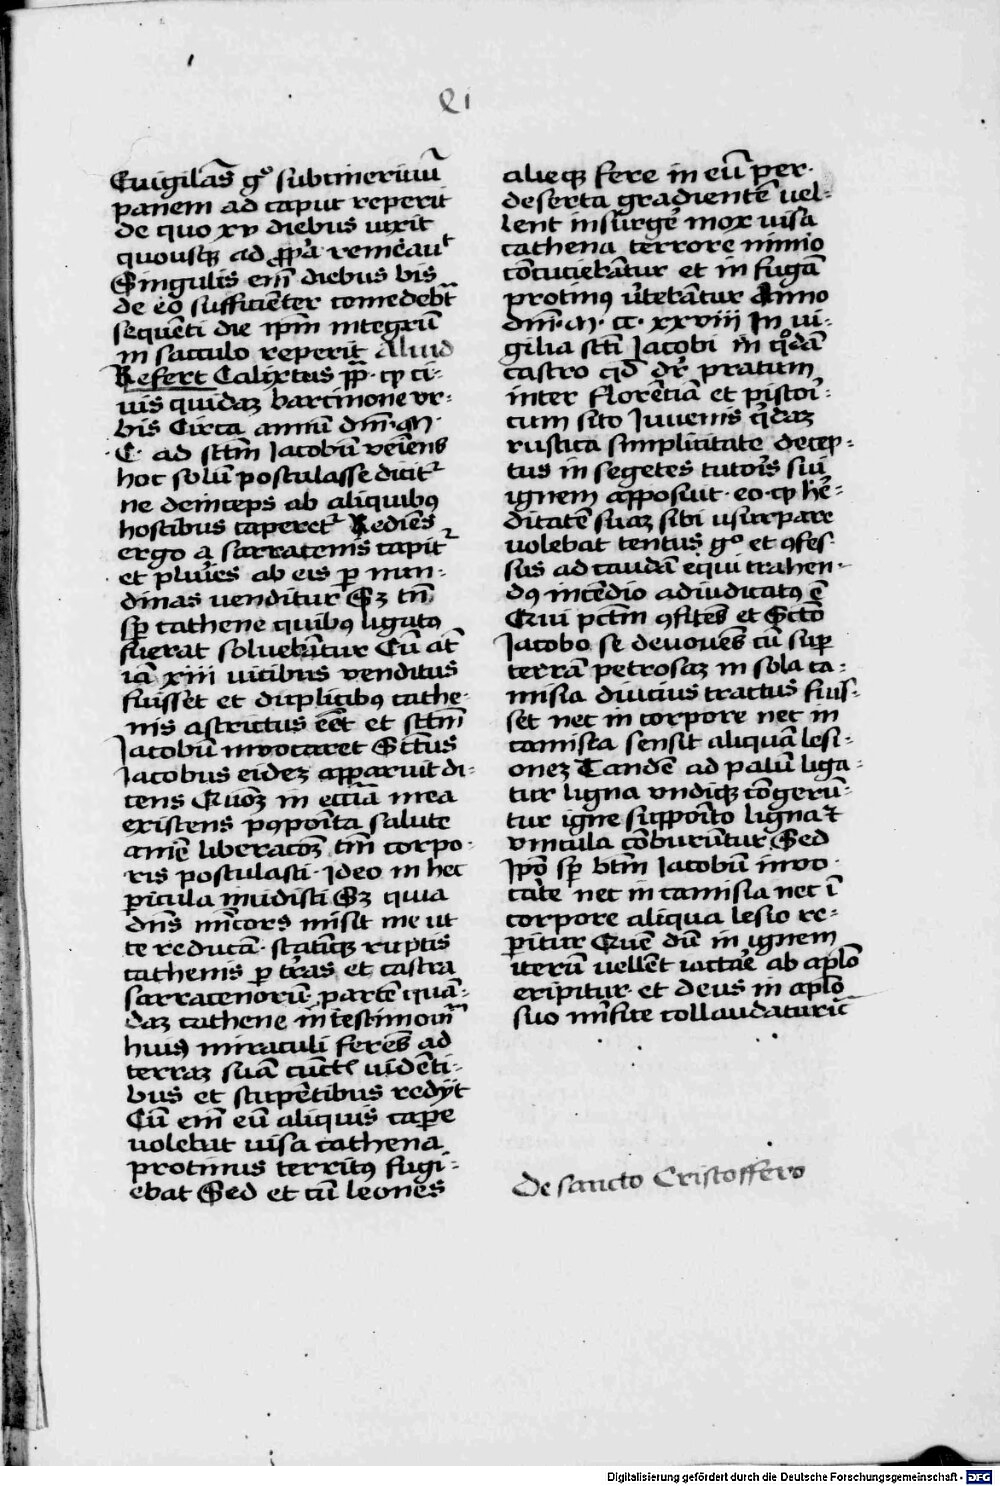 Evigilās gͦ subcinericiū
panem ad caput reperit
de quo xv diebus vixit
quousqꝫ ad ꝓp̄a remeauͭ
Singulis em̄ diebus bis
de eo sufficiēter comedebt̄
sequēti die ip̄m integrū
in sacculo reperit Aliud
Refert Calixtus pp̄ · ꝙ ci-
uis quidaꝫ barcinone vr-
bis Circa annū dn̄i · M ·
· C · ad sctm̄ Jacobū veiēns
hoc solū postulasse dicitᷣ
ne deinceps ab aliquibꝰ
hostibus caperetᷣ Rediēs
ergo a sarracenis capitᷣ
et plui̾es ab eis ꝑ nun-
dinas venditur Sꝫ tn̄
sp̄ cathene quibꝰ ligatꝰ
fuerat soluebātur Cū at̄
iā xiii vicibus venditus
fuisset et duplicibꝰ cathe-
nis astrictus eēt et sctm̄
Jacobū inuocaret Sctūs
Jacobus eideꝫ apparuit di-
cens Quōꝫ in ecciā mea
existens pꝰpoīta salute
anīe liberacōꝫ tm̄ corpo-
ris postulasti · ideo in hec
ꝑicula incidisti Sꝫ quia
dn̄s mīcors misit me ut
te reducā · statīqꝫ ruptis
cathenis ꝑ tr̄as et castra
sarracenorū · partē quā-
daꝫ cathene in testimoīu̅
huiꝰ miraculi ferēs ad
terraꝫ suā cūctꝭ vidēti-
bus et stupētibus redijt
Cū em̄ eū aliquis capē
volebat visa cathena
protinus territꝰ fugi-
ebat Sed et cū leones
alieqꝫ fere in eū per
deserta gradientē vel-
lent insurge̾ mox visa
cathena terrore nimio
cōcuciebātur et in fugā
protinꝰ v̾tebātur Anno
dn̄i · M · cc · xxviii In vi-
gilia scti̅ Jacobi in qͦdā
castro qd̄ dr̄ pratum
inter florēciā et pistoi̾-
cum sito Juvenis qͥdaꝫ
rustica simplicitate decep-
tus in segetes tutoi̾s sui
ignem apposuit · eo · ꝙ he̾-
ditatē suaꝫ sibi usurpare
volebat tentus gͦ et ꝯfes-
sus ad caudā equi trahen-
dꝰ incēdio adiudicatꝰ ē
Qui pctm̄ ꝯfitēs et Sctō
Jacobo se devouēs cū suꝑ
terrā petrosaꝫ in sola ca-
misia diucius tractus fuis-
set nec in corpore nec in
camisia sensit aliquā lesi-
oneꝫ Tandē ad palū liga-
tur ligna vndiqꝫ cōgerū-
tur igne suppoīto ligna et
vincula cōburūtur Sed
Ip̄o sp̄ btm̄ Jacobū inuo-
cāte nec in camisia nec ī
corpore aliqua lesio re-
ꝑitur Quē dū in ignem
iterū vellēt iactae̾ ab aplō
eripitur · et deus in aplō
suo mīfice collaudaturᷣ
De sancto Cristoffero